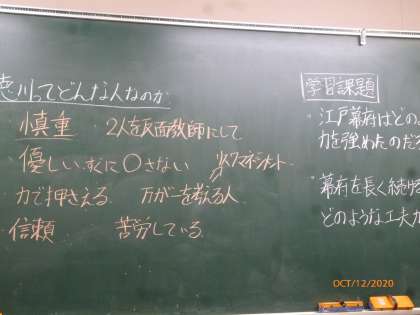 徳川ってどんな人なのか
・慎重　2人を反面教師にして
・優しいすぐに〇さない　リスクマネジメント
・力で押さえる　万が一を考える人
・信頼　苦労している
学習課題
・江戸幕府はどの
力を強めたのだろ
・幕府を長く続ける
どのような工夫が
OCT/12/2020